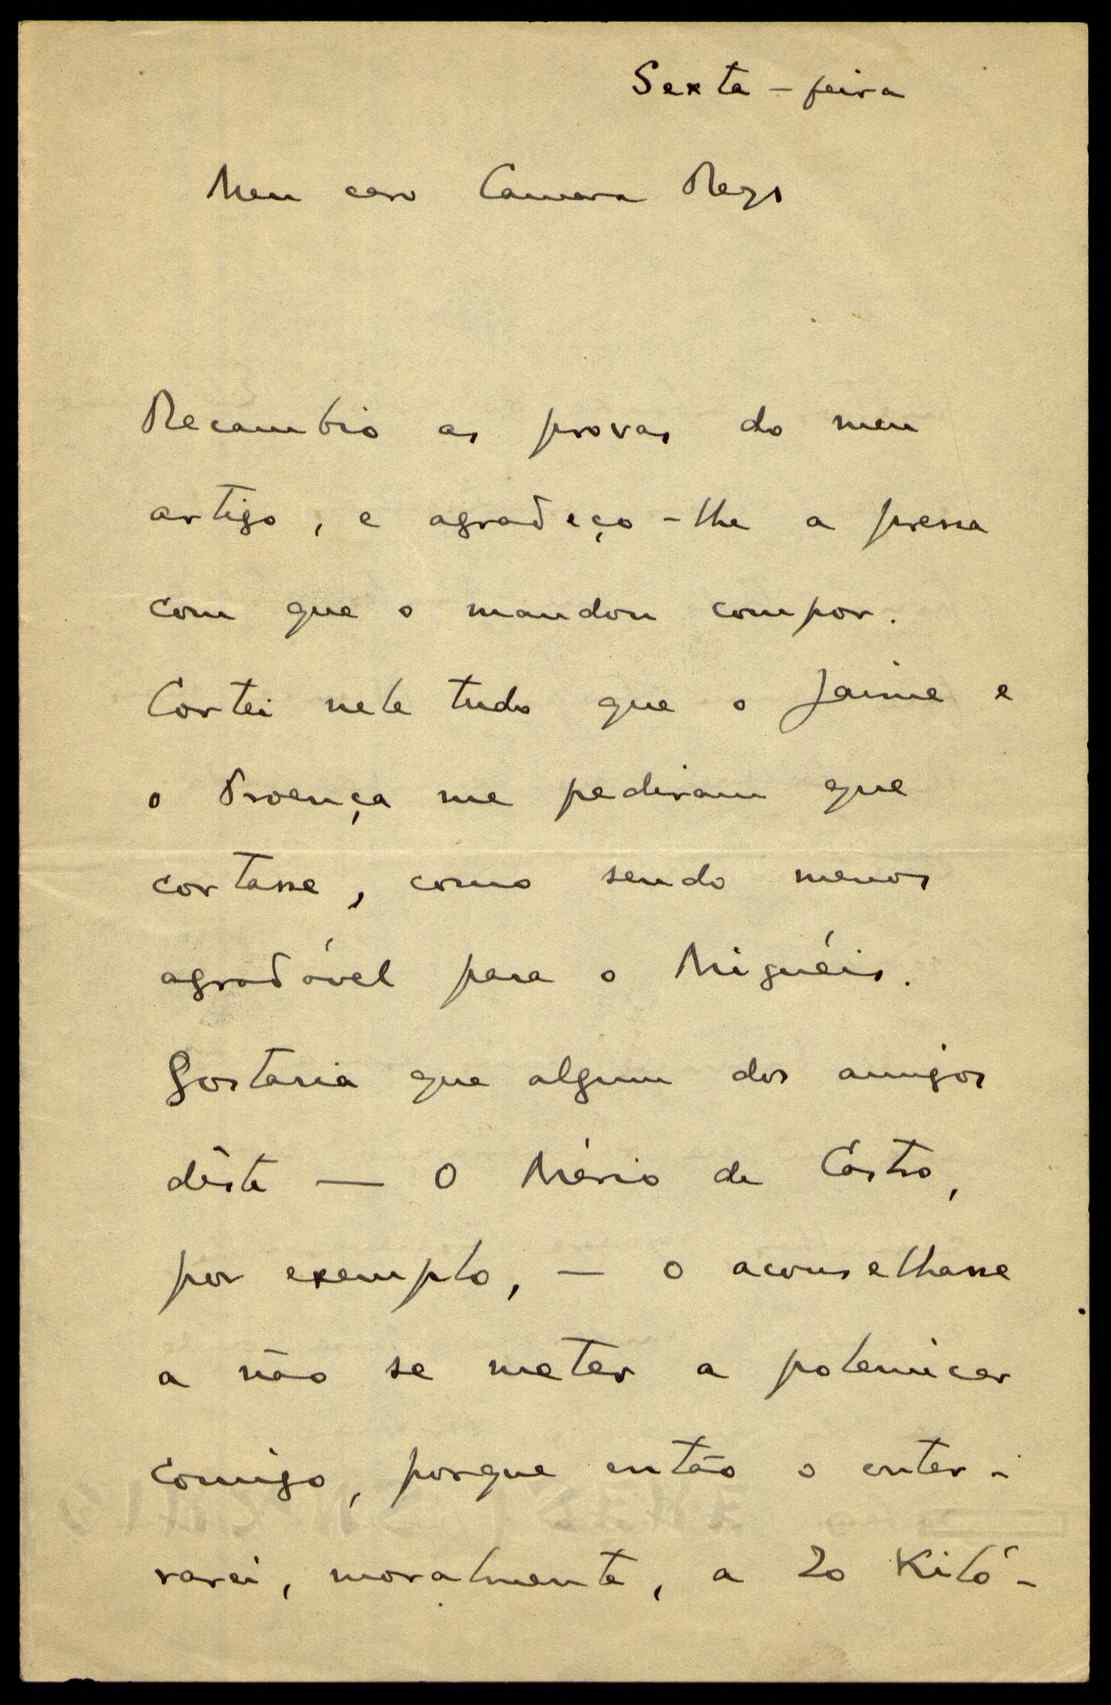 Sexta-feira
Meu caro Camara Reys
Recambio as provas do meu
artigo, e agradeço-lhe a pressa
com que o mandou compor.
Cortei nele tudo que o Jaime e
o Proença me pediram que
cortasse, como sendo menos
agradável para o Miguéis.
Gostaria que algum dos amigos
dêste — O Mário de Castro,
por exemplo, — o aconselhasse
a não se meter a polemicar
comigo, porque então o enter-
rarei, moralmente, a 20 Kiló-